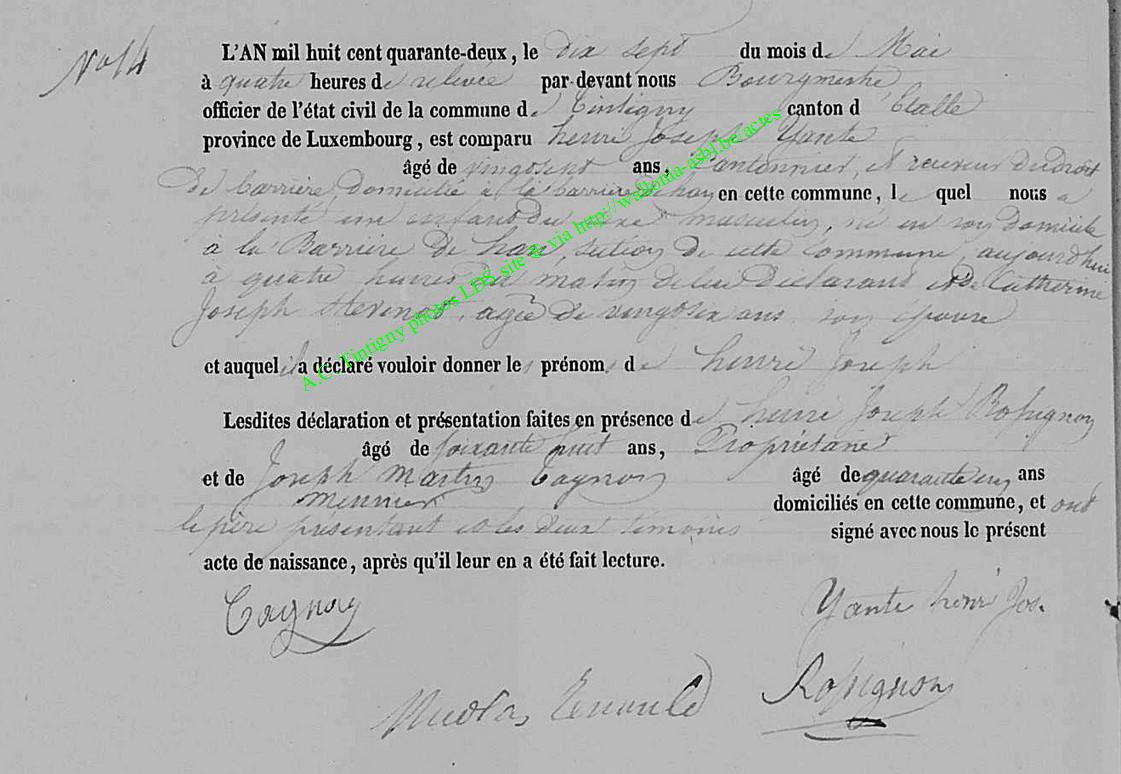 No 14
L'AN mil huit cent quarante-deux, le dix sept du mois de Mai
à quatre heures de relevée par-devant nous Bourgmestre
officier de l'état civil de la commune de Tintigny canton d Etalle
province de Luxembourg, est comparu henri Joseph Yante
âgé de vingtsept ans, Cantonnier, et receveur du droit
de barrière, domicilié à la barriere de han en cette commune, le quel nous a
présenté un enfant du sexe masculin, né en son domicile
à la Barrière de han, section de cette commune, aujourd'hui
à quatre heures du matin de lui déclarant et de Catherine
Joseph agée de vingtsix ans son épouse
et auquel il a déclaré vouloir donner les prénoms de henri Joseph
Lesdites déclaration et présentation faites en présence de henri Joseph Rossignon
âgé de soixante huit ans, Propriétaire
et de Joseph Martin Tagnon âgé de quarante un ans
Meunier domiciliés en cette commune, et ont
le père présentant et les deux témoins signé avec nous le présent
acte de naissance, après qu'il leur en a été fait lecture.
Tagnon Yante henri Jos.
Nicolas Rossignon
A.C. Tintigny photos LDS site & via http://wallonia-asbl.be/actes